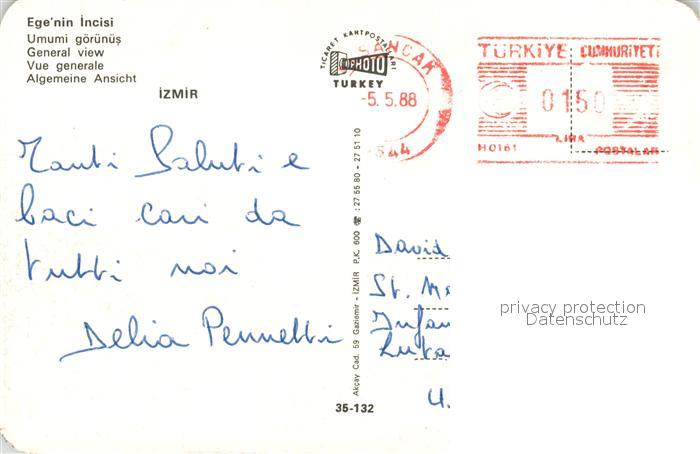 Ege'nin İncisi
Umumi görünüş
General view
Vue generale
Algemeine Ansicht
İZMİR
TICARET KARTPOSTALLARI
PHOTO
TURKEY
SANCAK
-5.5.88
TÜRKİYE CUMHURİYETİ
0150
LİRA
H0161 POSTALARI
Tanti Saluti e
baci cari da
tutti noi
Delia Pennetti
Akçay Cad. 59 Gaziemir - İZMİR P.K. 600 ☎: 27 55 80 - 27 51 10
35-132
David
St.
U.
privacy protection
Datenschutz